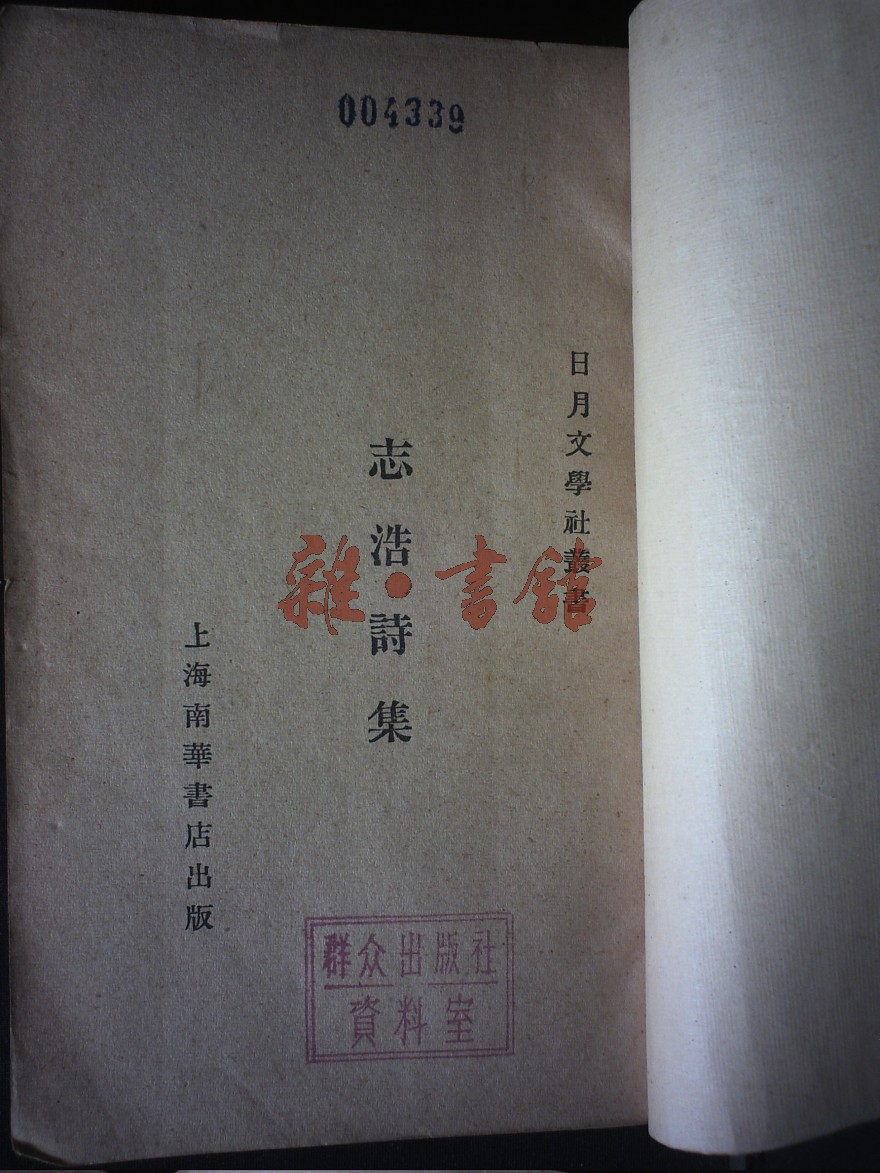 004339
日月文學社叢書
志浩詩集
上海南華書店出版
雜·書館
群众出版社
資料室